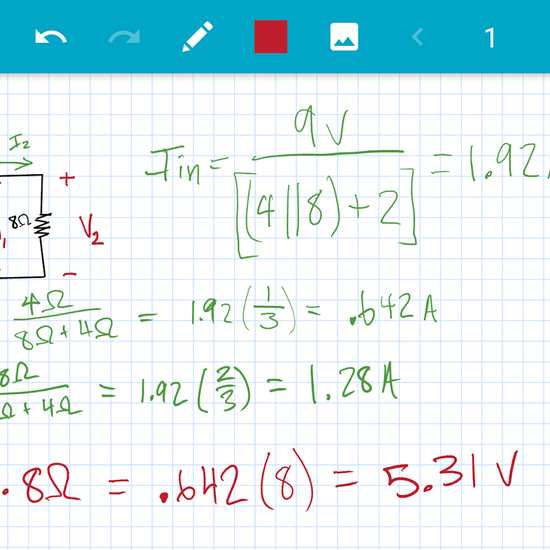 1
I2
Iin = 9V / [(4||8)+2] = 1.92
+
8Ω
V2
-
4Ω / 8Ω+4Ω = 1.92(1/3) = .642A
8Ω / Ω+4Ω = 1.92(2/3) = 1.28A
.8Ω = .642(8) = 5.31V